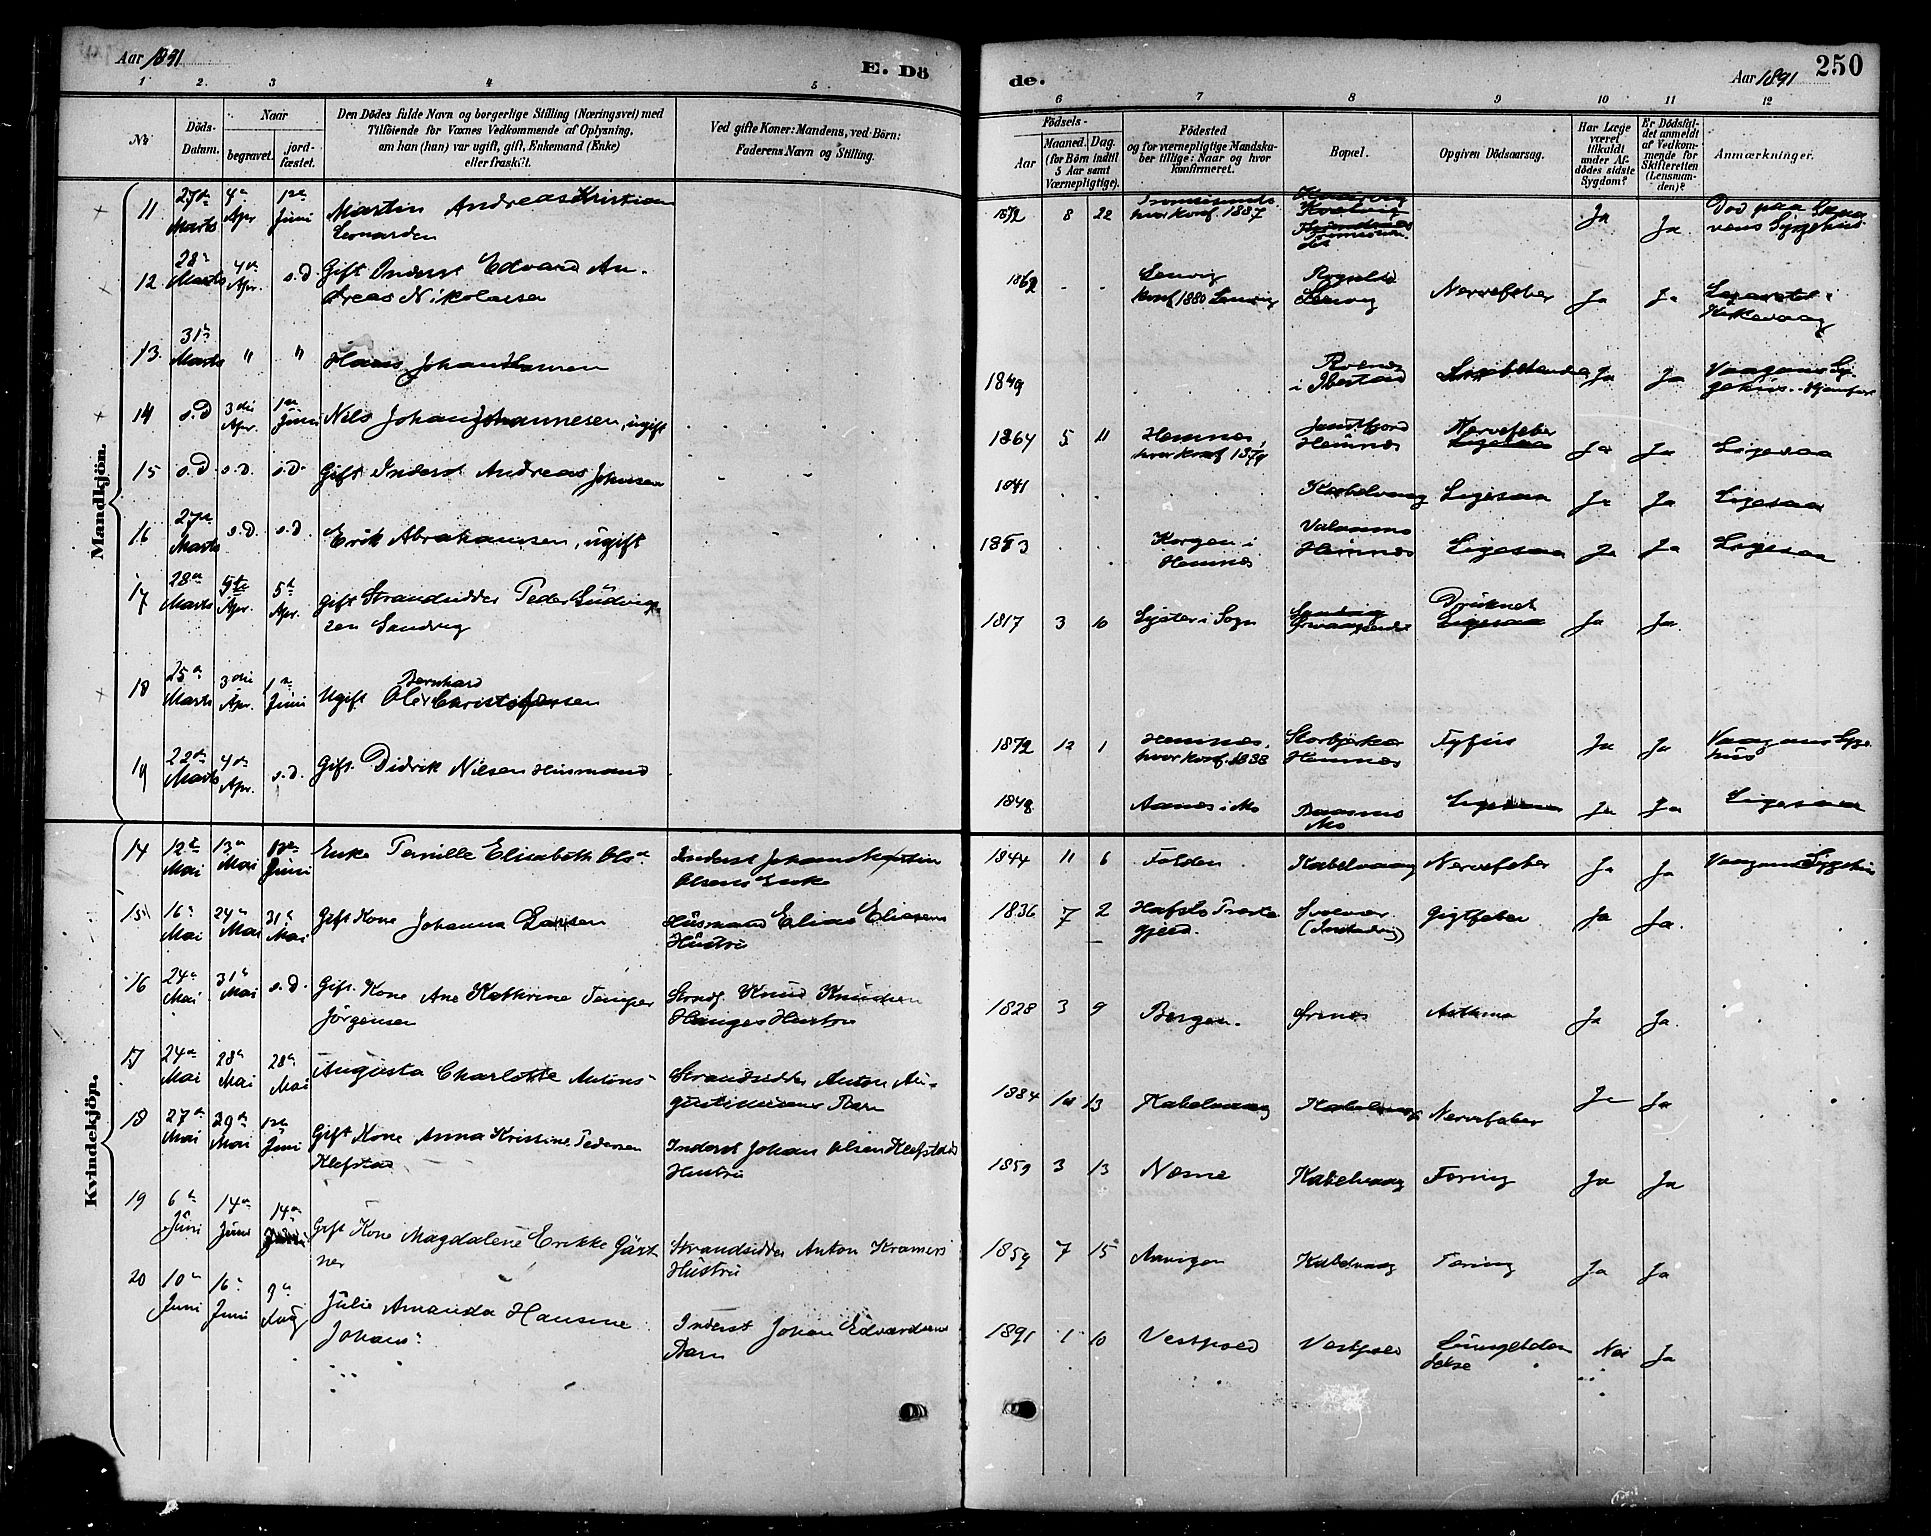 Aar 1891
E. Dö
de.
Aar 1891
250
1 2. 3 4 5
6 7 8 9 10 11 12
No
Döds-Datum.
Naar
begravet.
jordfæstet.
Den Dödes fulde Navn og borgerlige Stilling (Næringsvei) med
Tilföiende for Voxnes Vedkommende af Oplysning,
om han (hun) var ugift, gift, Enkemand (Enke)
eller fraskilt.
Ved gifte Koner: Mandens, ved Börn:
Faderens Navn og Stilling.
Födsels-
Aar
Maaned. Dag.
(for Börn indtil
5 Aar samt
Værnepligtige).
Födested
og for værnepligtige Mandskaber tillige: Naar og hvor
konfirmeret.
Bopæl.
Opgiven Dödsaarsag.
Har Læge
været
tilkaldt
under Afdödes sidste
Sygdom?
Er Dödsfaldet anmeldt
af Vedkommende for
Skifteretten
(Lensmanden)?
Anmærkninger.
Mandkjön.
11 27de Marts 4de Apr 1ste Juni Martin Andreas Kristian
hvor konf. 1887
1872 8 22 Ja Ja Död paa
12 28de Marts 4de Apr. s.D. Gift Inderst Edvard An-
dreas Nikolaisen
1862 - - Lenvig Lenvig Nervefeber Ja Ja
konf 1880 Lenvig
13 31te Marts " " Hans Johan Hansen
1849 i Ibestad Ja Ja
14 s.D 3die Apr. 1ste Juni Nils Johan Johannesen, ugift
1864 5 11 Hemnæs, Hemnæs Nervefeber Ja Ja Ligesaa
hvor konf 1879
15 s.D. s.D. s.D. Gift Inderst Andreas Johnsen
1841 Kabelvaag Ligesaa Ja Ja Ligesaa
16 27de Marts s.D. s.D. Erik Abrahamsen, ugift
1853 Korgen i Hemnæs Hemnæs Ligesaa Ja Ja Ligesaa
17 28de Marts 5te Apr. 5te Apr. Gift Strandsidder Peder Ludvig-
sen Sandvig
1817 3 10 Lyster i Sogn Druknet Ja Ja
18 25de Marts 3die Apr. 1ste Juni Ugift Ole Bernhard Christofersen
1872 12 1 Hemnæs, Hemnæs Tyfus Ja Ja Vaagans Syge-
hvor konf. 1888 hus
19 22de Marts 4de Apr. s.D. Gift. Didrik Nilsen Husmand
1848 Mo Ligesaa Ja Ja Ligesaa
Kvindekjön.
14 12te Mai 13de Mai Juni Enke Pernille Elisabeth Olsd
Inderst Johan Martin
Olsens Enke
1844 11 6 Folden Kabelvaag Nervefeber Ja Ja Vaagans Sygehus
15 16de Mai 24de Mai 31te Mai Gift Kone Johanna Larsen
Husmand Elias Eliasens
Hustru
1836 7 2 Hafslo Præste-
gjeld. Svolvær Gigtfeber Ja Ja.
16 24de Mai 31te Mai s.D. Gift. Kone Ane Kathrine
Jörgensen
Knud Knudsen
Hauges Hustru
1828 3 9 Bergen. Örsnes Astma Ja Ja.
17 24de Mai 28de Mai 28de Mai Augusta Charlotte Antons-
Strandsidder Anton Au-
gustinusens Barn
1884 10 13 Kabelvaag Kabelvaag Nervefeber Ja Ja
18 27de Mai 29de Mai 1ste Juni Gift Kone Anna Kristine Pedersen
Klefstad
Inderst Johan Olsen Klefstads
Hustru
1859 3 13 Nesne Kabelvaag Tæring Ja Ja
19 6te Juni 14de Juni 14de Juni Gift Kone Magdalene Erikke Gärt-
ner
Strandsidder Anton Kramers
Hustru
1859 7 15 Kabelvaag Tæring Ja Ja
20 10de Juni 16de Juni 9de Aug Julie Amanda Hansine
Johans-
Inderst Johan Edvardsens
Barn
1891 1 10 Vestpold Vestpold Nei Ja